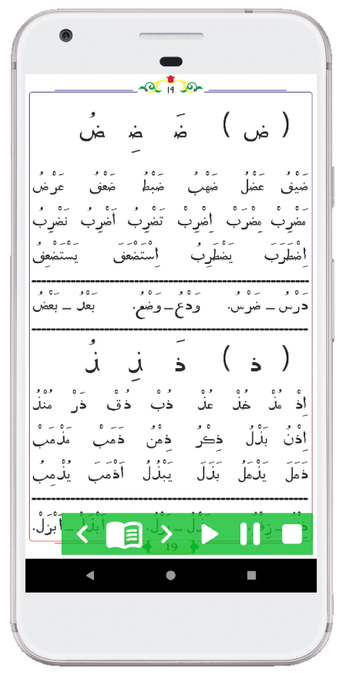 ١٩
( ض ) ضَ ضِ ضُ
ضَيْقُ عَضْلُ ضَهْبُ ضَبْطُ ضَعْفُ عَرْضُ
مَضْرِبْ مِضْرَبْ اِضْرِبْ تَضْرِبُ اَضْرِبُ نَضْرِبُ
اِضْطَرَبَ يَضْطَرِبُ اِسْتَضْعَفَ يَسْتَضْعِفُ
دَرْسُ ـ ضَرْسُ. وَدْعُ ـ وَضْعُ. بَعْدُ ـ بَعْضُ
( ذ ) ذَ ذِ ذُ
اِذْ مُذْ خُذْ عُذْ ذُبْ ذُقْ ذَرْ مُنْذُ
اِذْنُ بَذْلُ ذِكْرُ ذِهْنُ ذَهَبْ مَذْهَبْ
يَذْمَلُ بَذَلَ يَبْذُلُ اَذْهَبَ يُذْهِبُ
19